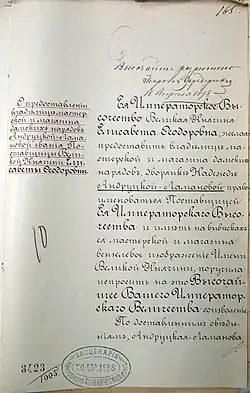 165
Высочайше разрешено
О предоставлении
владелице мастер-
ской и магазина
дамских нарядов
Андруцкой-Лапано-
вой звания По-
ставщицы Вели-
кой Княгини Ели-
саветы Ѳеодоровны.
Ея Императорское Вы-
сочество Великая Княгиня
Елисавета Ѳеодоровна, желая
предоставить владелице ма-
стерской и магазина дамских
нарядов, дворянке Надежде
Андруцкой-Лапановой право
именоваться Поставщицей
Ея Императорскаго Высо-
чества и иметь на вывесках
мастерской и магазина
вензелевое изображение Имени
Великой Княгини, поручила
испросить на это Высочай-
шее Вашего Император-
скаго Величества соизволение.
По доставленным сведе-
ниям, Андруцкая-Лапанова
10
3423
1905
КАНЦЕЛЯРІЯ